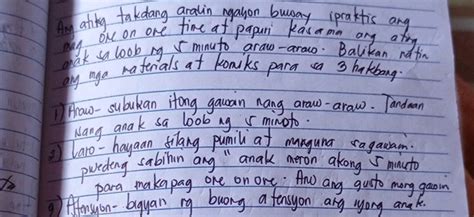 Ang ating takdang aralin ngayon buway ipraktis ang
mag one on one time at papuri kasama ang ating
anak sa loob ng 5 minuto araw-araw. Balikan natin
ang mga materials at komiks para sa 3 hakbang.
1) Araw - subukan itong gawain nang araw-araw. Tandaan
nang anak sa loob ng 5 minoto.
2) Laro - hayaan silang pumili at manguna sa gawain.
pwedeng sabihin ang "anak meron akong 5 minuto
para makapag one on one. Ano ang gusto mong gawin
3) Atensyon - bigyan ng buong atensyon ang iyong anak.